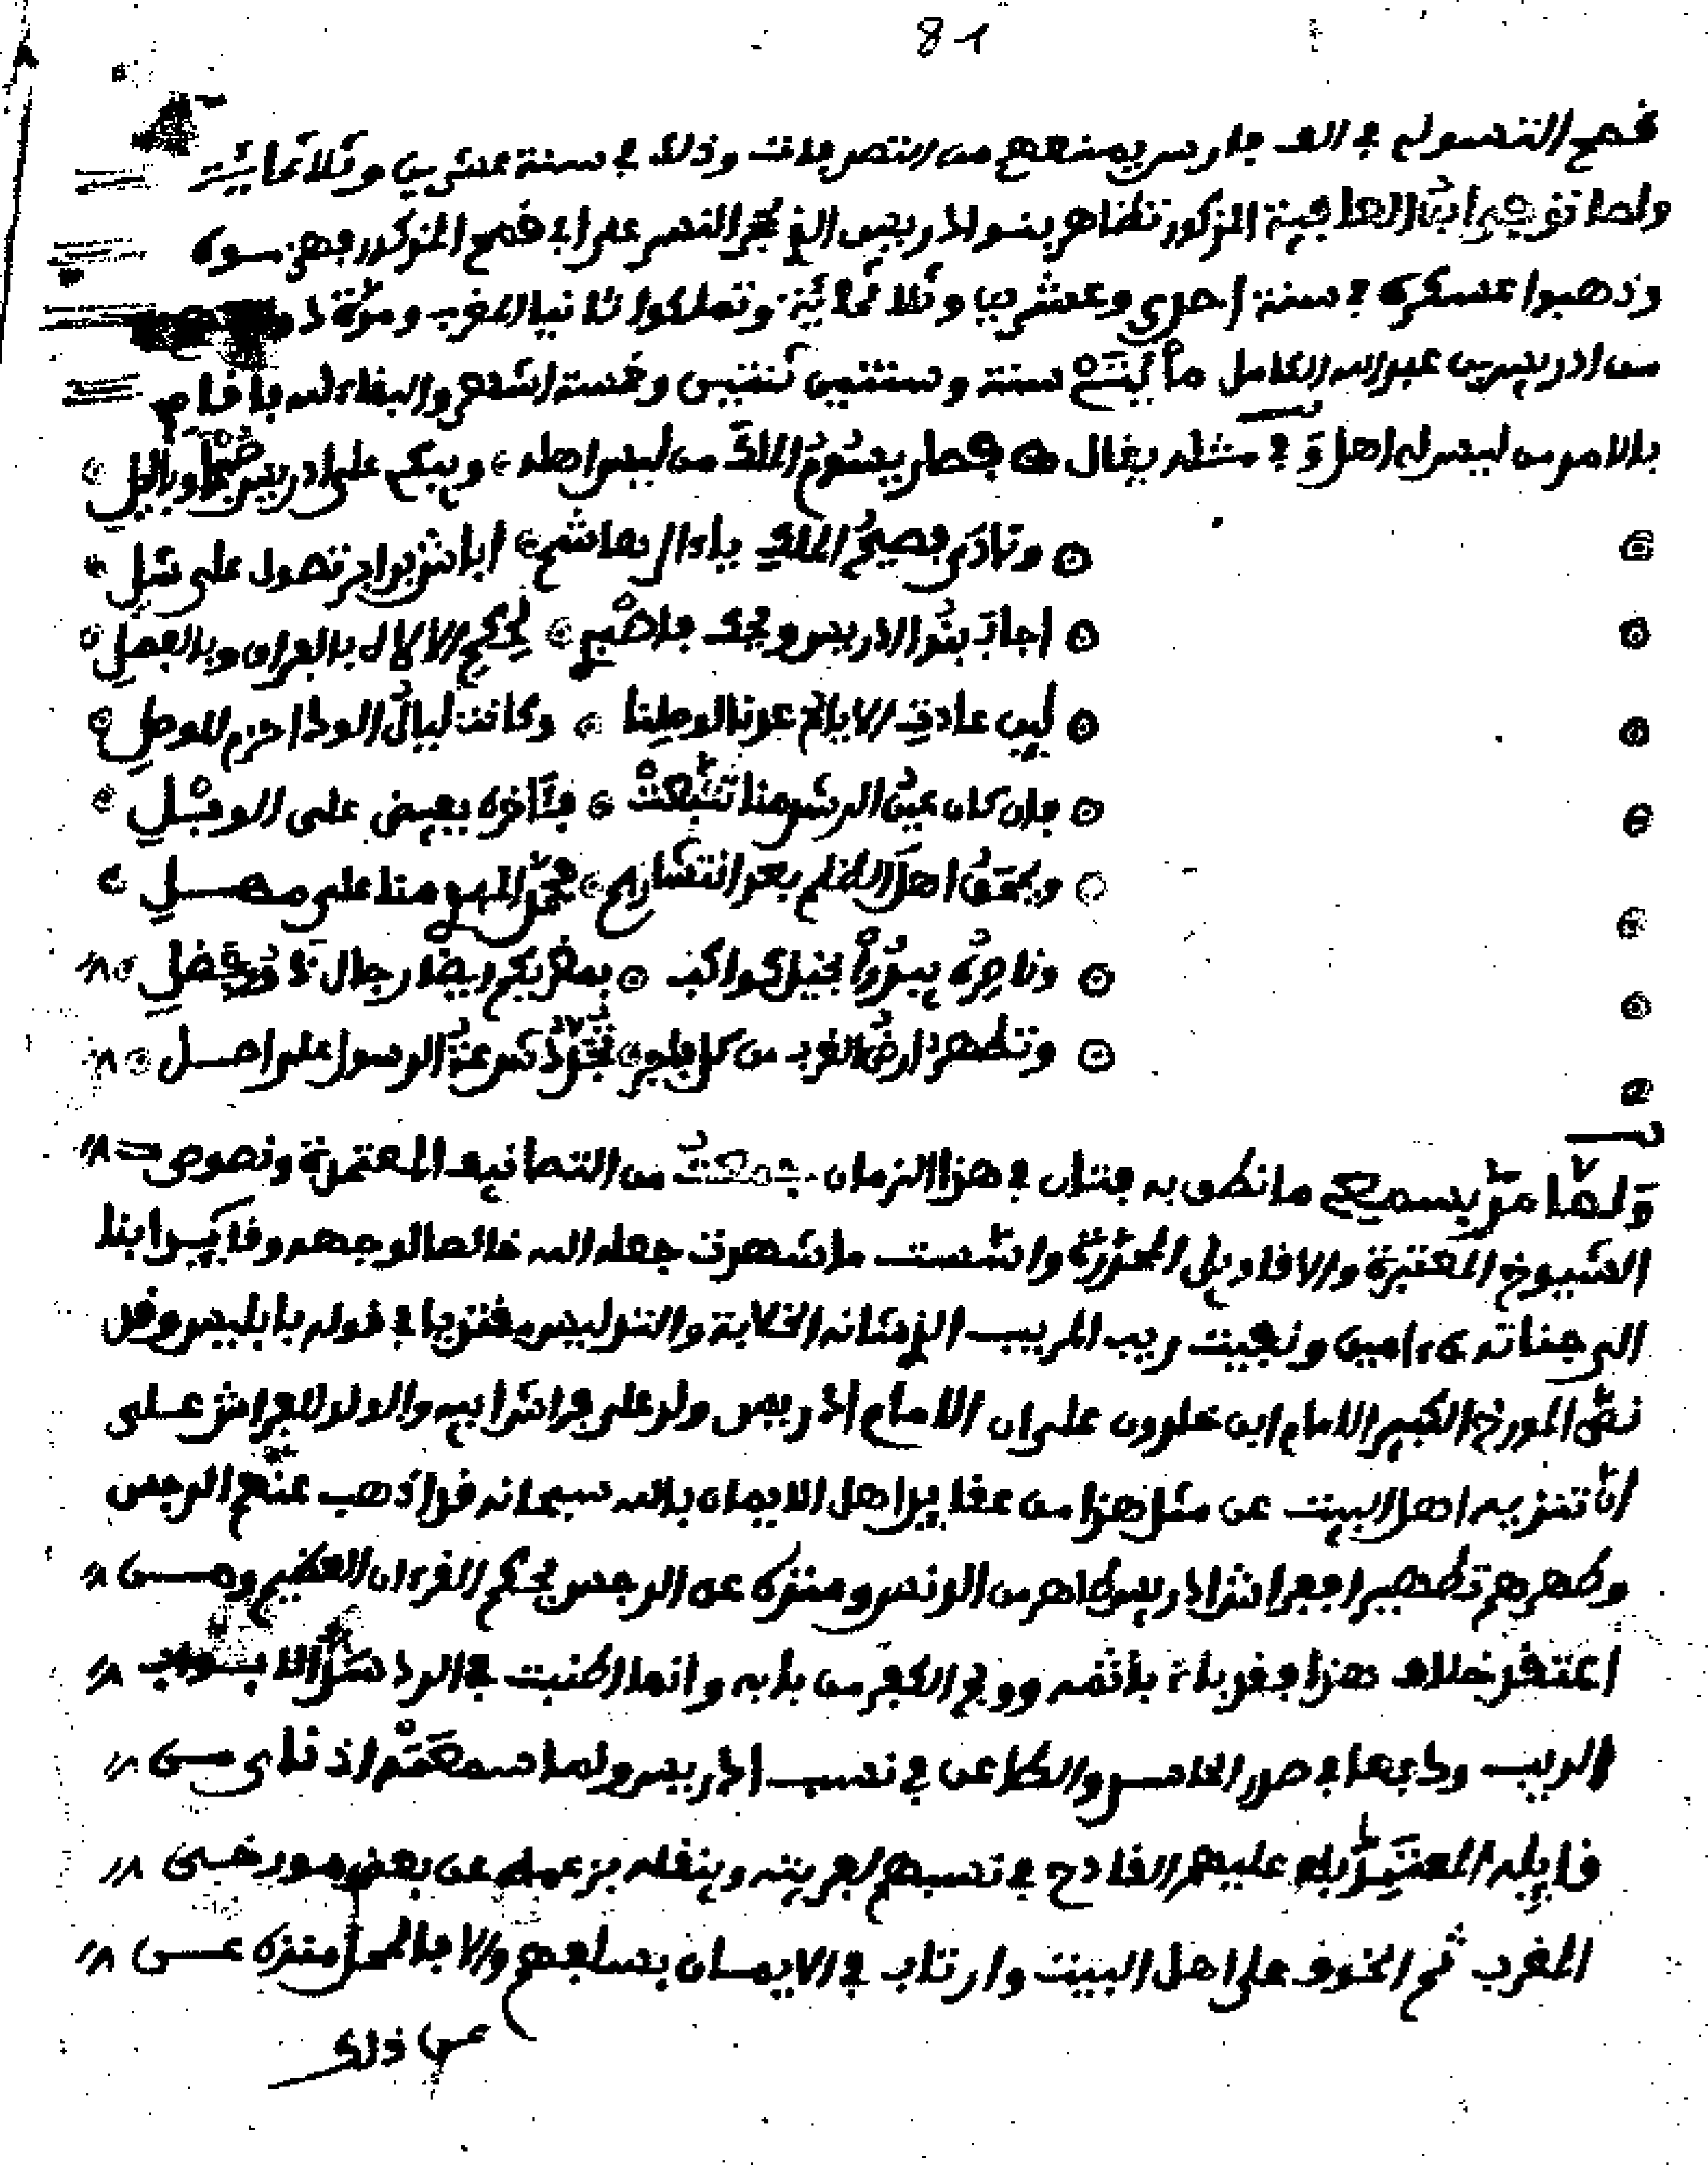 81
فمح التسولي في الف فارس يمنعهم من التصرفات وذلك في سنة عشرين وثلاثمائة
ولما توفي ابن العافية المذكور تظاهر بنوا ادريس الذي بحجر النسر على ابي فمح المذكور فهزموه
وذهبوا عسكره في سنة احدى وعشرين وثلاثمائة وتملكوا ثانيا المغرب ومدة
من ادريس بن عبد الله الكامل مائتي سنة وسنتين ثنتين وخمسة اشهر والبقاء لله يا قايم
بالامر من ليس له اهل وفي مثله يقال فصار يسوم الملك من ليس اهله ويبكي على ادريس
ونادى فصيح الملك ياءال هاشم على شبل
اجابه بنوا الادريس ويحك فاصبر لحكم الاله بالقران وبالفصل
لين عادت الايام عدنا لوصلنا وكانت ليال الود احزم للوصل
فان كان عين الرشد منا تتبعت فئاخره يفيض على الوبل
ويمحق اهل الظلم بعد انتشارهم محمد المهدي منا على مهل
وناصره يبدوا بخيل كواكب بمغربكم ايضا رجال
وتطهر ارض الغرب من كل فاجر شرعة الرسول على اصل
ولما مر بسمعكم ما نطق به فتان في هذا الزمان جمعت من التصانيف المعتمدة ونصوص
الشيوخ المعتبرة والاقاويل المحررة واسست ما شهرت جعله الله خالصا لوجهه وقايدا بنا
الى جناته ءامين ونفيت ريب المريب الذي شانه الخلابة والتدليس مفتريا في قوله يا بليس وقد
نص المورخ الكبير الامام ابن خلدون على ان الامام ادريس ولد على فراش ابيه والولد للفراش على
ان تنزيه اهل البيت عن مثل هذا من عقايد اهل الايمان بالله سبحانه قد اذهب عنهم الرجس
وطهرهم تطهيرا ففراش ادريس طاهر من الدنس ومنزه عن الرجس بحكم القرءان العظيم ومن
اعتقد خلاف هذا فقد باء باثمه وولج الكفر من بابه وانما اطنبت في الرد سدا لابواب
الريب ودفعا في صدر الحاسد والطاعن في نسب ادريس ولما سمعته اذناي من
قايله المعتدي عليهم القادح في نسبهم بفريته وينقله بزعمه عن بعض مورخي
المغرب ثم الخوف على اهل البيت وارتاب في الايمان بسلفهم والا فالمحل منزه عن
عن ذلك